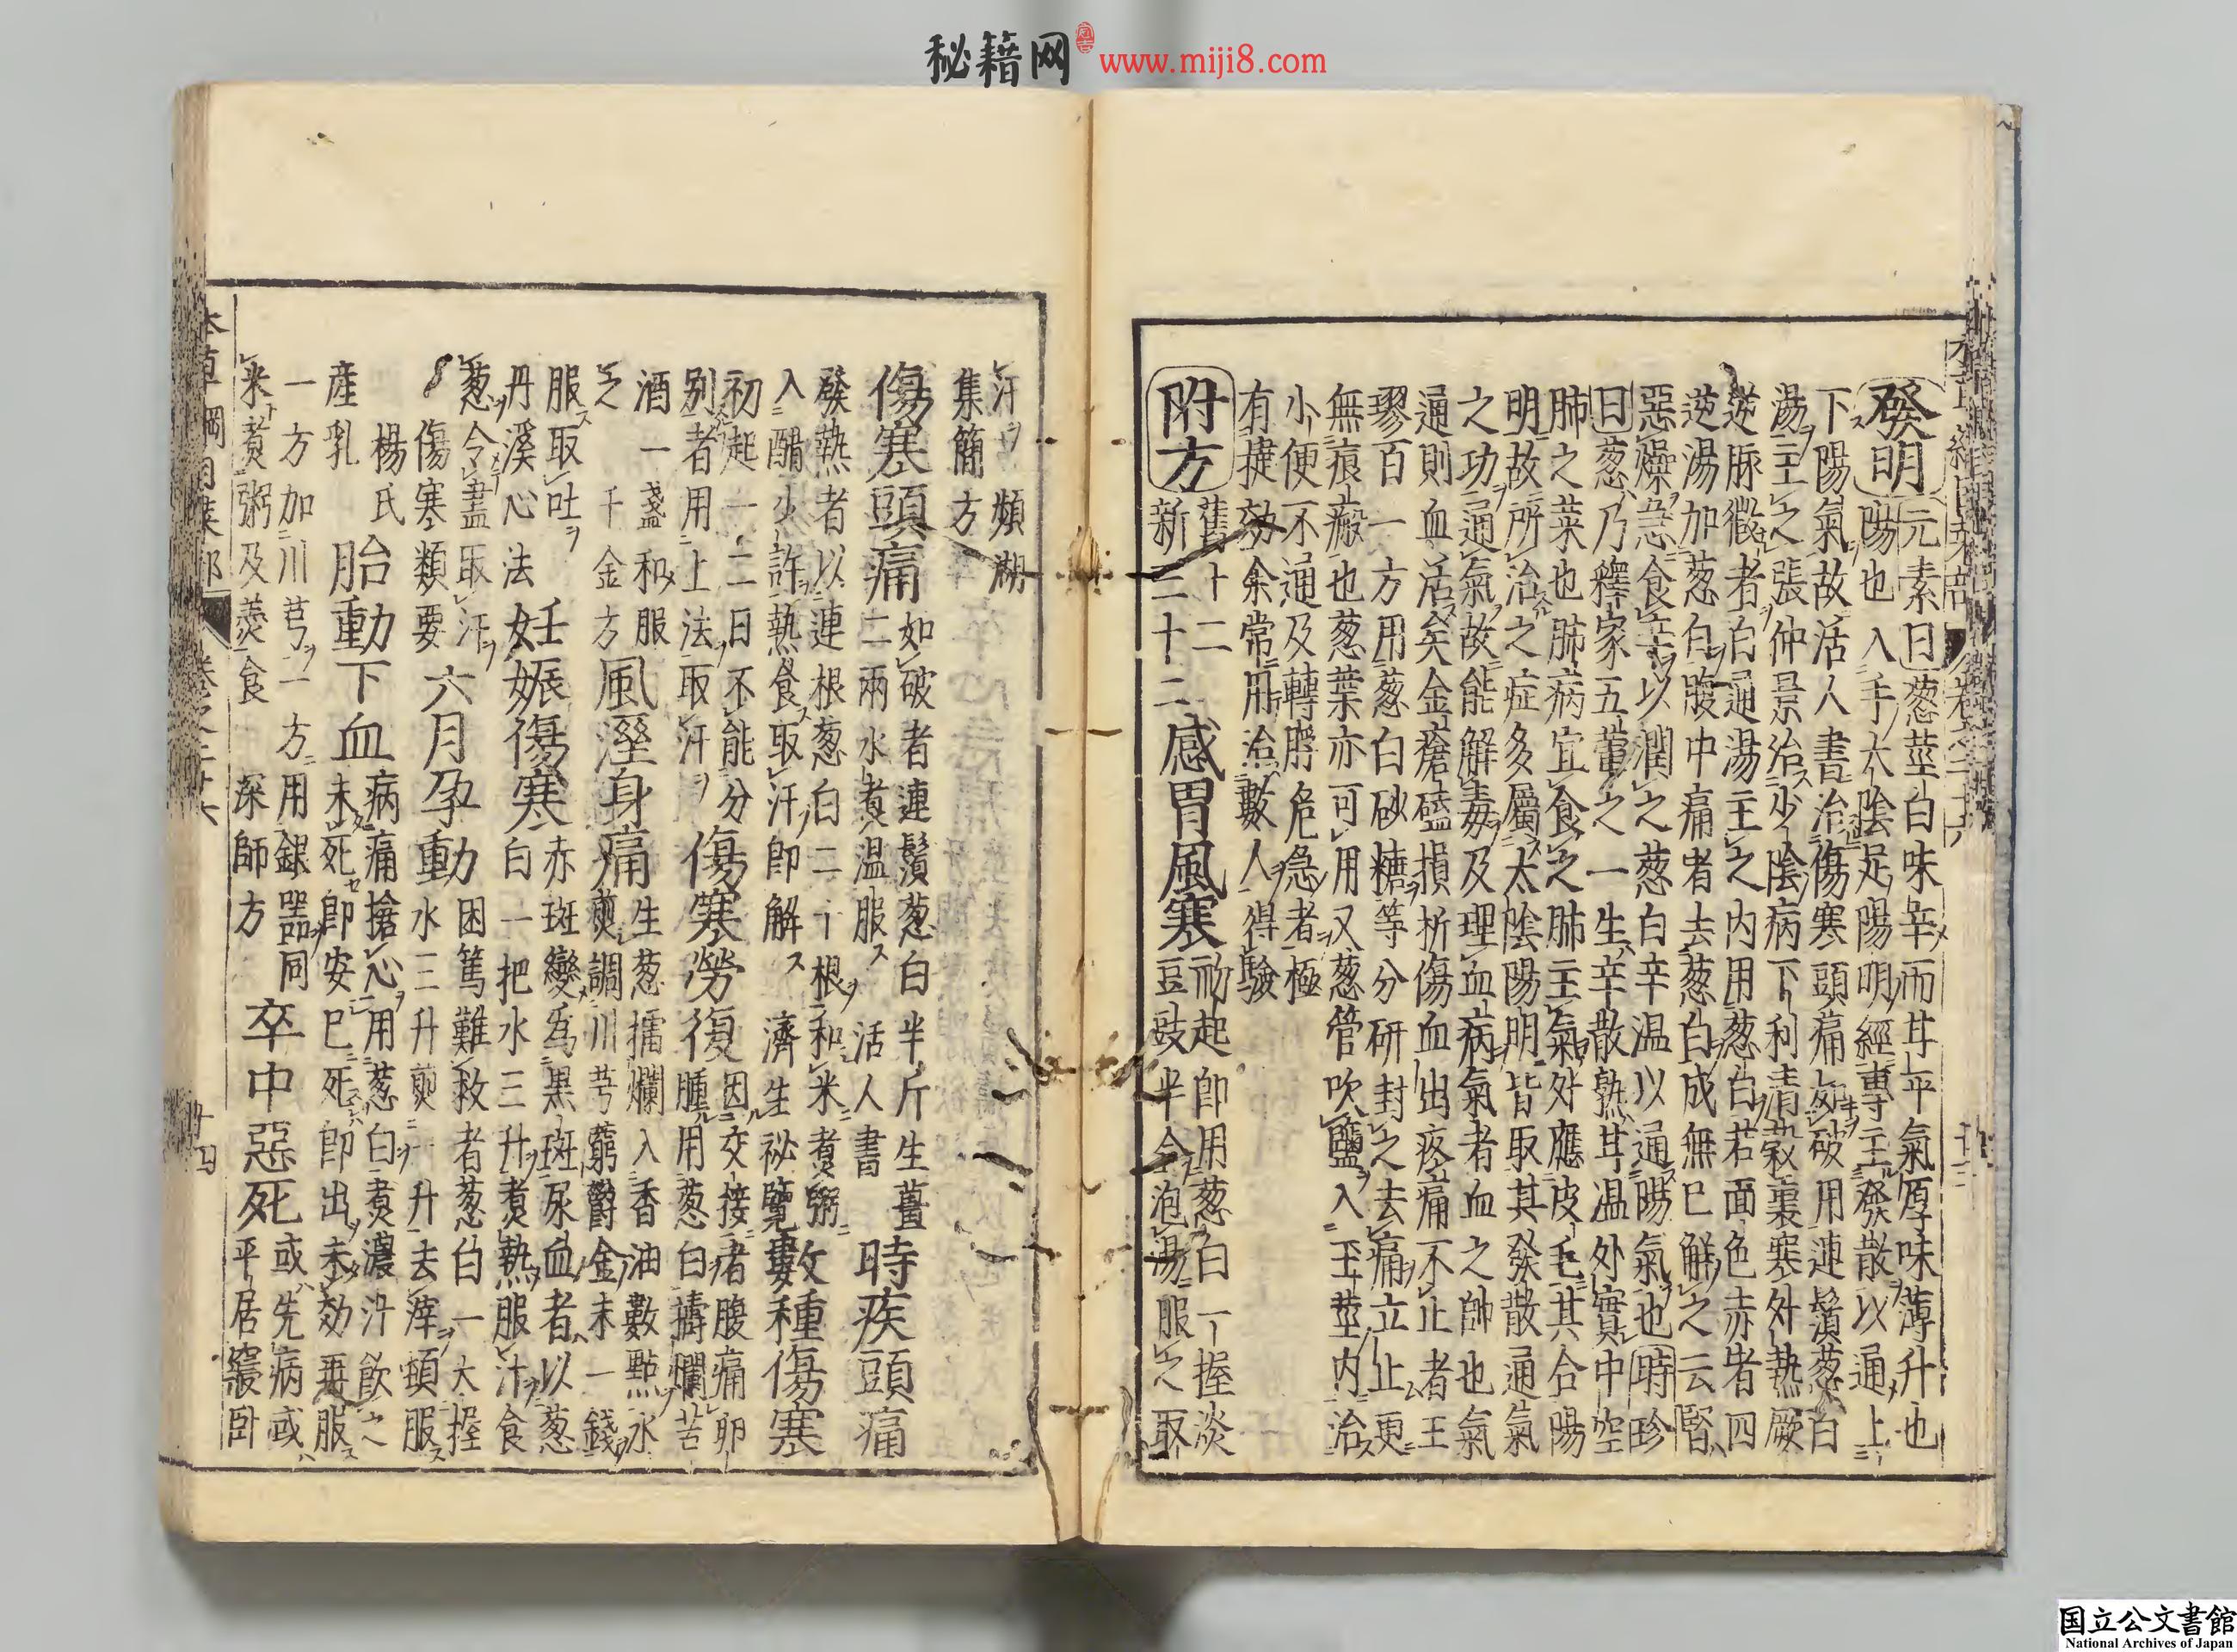 秘籍网 www.miji8.com
發明元素曰葱莖白味辛而甘平氣厚味薄升也
陽也入手太陰足陽明經專主發散以通上
下陽氣故活人書治傷寒頭痛如破用連鬚葱白
湯主之張仲景治少陰病下利清穀裏寒外熱厥
逆脉微者白通湯主之内用葱白若面色赤者四
逆湯加葱白腹中痛者去葱白成無已解之云腎
惡燥急食辛以潤之葱白辛温以通陽氣也時珍
曰葱乃釋家五葷之一生辛散熱甘温外實中空
肺之菜也肺病宜食之肺主氣外應皮毛其合陽
明故所治之症多屬太陰陽明皆取其發散通氣
之功通氣故能解毒及理血病氣者血之帥也氣
通則血活矣金瘡磕損折傷血出疼痛不止者王
璆百一方用葱白砂糖等分研封之去痛立止更
無痕瘢也葱葉亦可用又葱管吹鹽入玉莖内治
小便不通及轉脬危急者極
有捷効余常用治數人得驗
附方舊十二
新三十二感冒風寒初起即用葱白一握淡
豆豉半合泡湯服之取
汗 頻湖
集簡方
傷寒頭痛如破者連鬚葱白半斤生薑
二兩水煮温服 活人書時疾頭痛
發熱者以連根葱白二十根和米煮粥
入醋少許熱食取汗即解 濟生祕覽數種傷寒
初起一二日不能分
別者用上法取汗傷寒勞復因交接者腹痛卵
腫用葱白擣爛苦
酒一盞和服
之 千金方風溼身痛生葱擂爛入香油數點水
煎調川芎藭鬱金末一錢
服取吐
丹溪心法妊娠傷寒赤斑變爲黑斑尿血者以葱
白一把水三升煮熱服汁食
葱令盡取汗
傷寒類要六月孕動困篤難救者葱白一大握
水三升煎一升去滓頓服
楊氏
産乳胎動下血病痛搶心用葱白煮濃汁飲之
未死即安已死即出未効再服
一方加川芎一方用銀器同
米煮粥及羹食 深師方卒中惡死或先病或
平居寢卧
本草綱目菜部 卷之二十六 十四
国立公文書館
National Archives of Japan